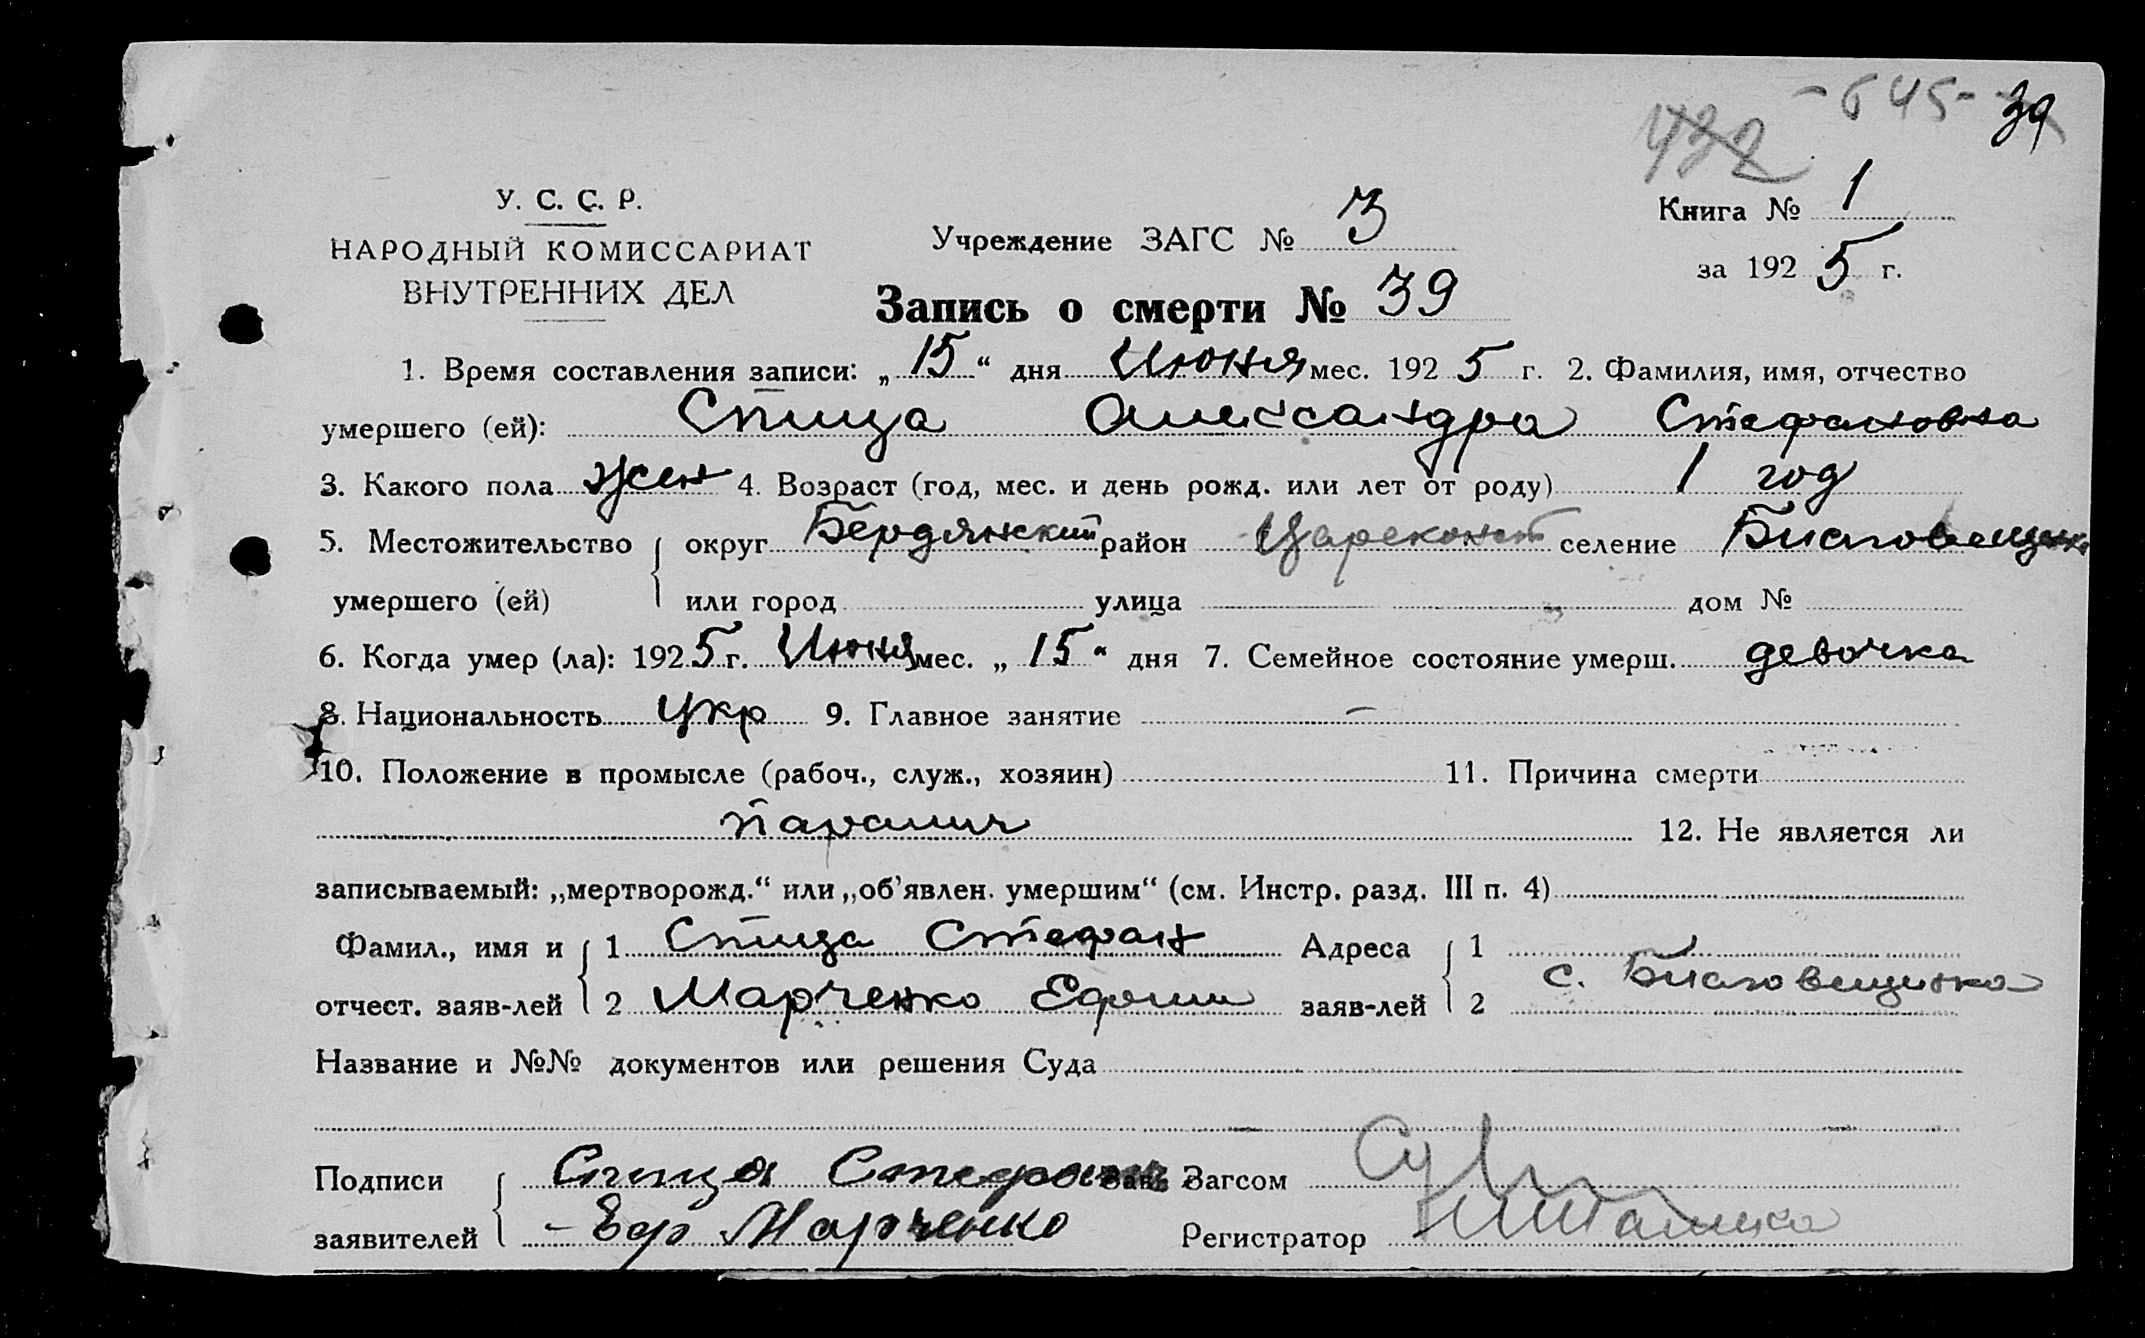 -645- 39
432
У. С. С. Р.
НАРОДНЫЙ КОМИССАРИАТ
ВНУТРЕННИХ ДЕЛ
Учреждение ЗАГС № 3
Книга № 1
за 1925 г.
Запись о смерти № 39
1. Время составления записи: „15“ дня Июня мес. 1925 г. 2. Фамилия, имя, отчество
умершего (ей): Спица Александра Стефановна
3. Какого пола жен 4. Возраст (год, мес. и день рожд. или лет от роду) 1 год
5. Местожительство округ Бердянский район Цареконст селение Благовещенка
умершего (ей) или город улица дом №
6. Когда умер (ла): 1925 г. Июня мес. „15“ дня 7. Семейное состояние умерш. девочка
8. Национальность Укр 9. Главное занятие —
10. Положение в промысле (рабоч., служ., хозяин) 11. Причина смерти
паралич 12. Не является ли
записываемый: „мертворожд.“ или „об’явлен. умершим“ (см. Инстр. разд. III п. 4)
Фамил., имя и 1 Спица Стефан Адреса 1
отчест. заяв-лей 2 Марченко Ефрем заяв-лей 2 с. Благовещенка
Название и №№ документов или решения Суда
Подписи Спица Стефан Зав. Загсом
заявителей - Ефр Марченко Регистратор